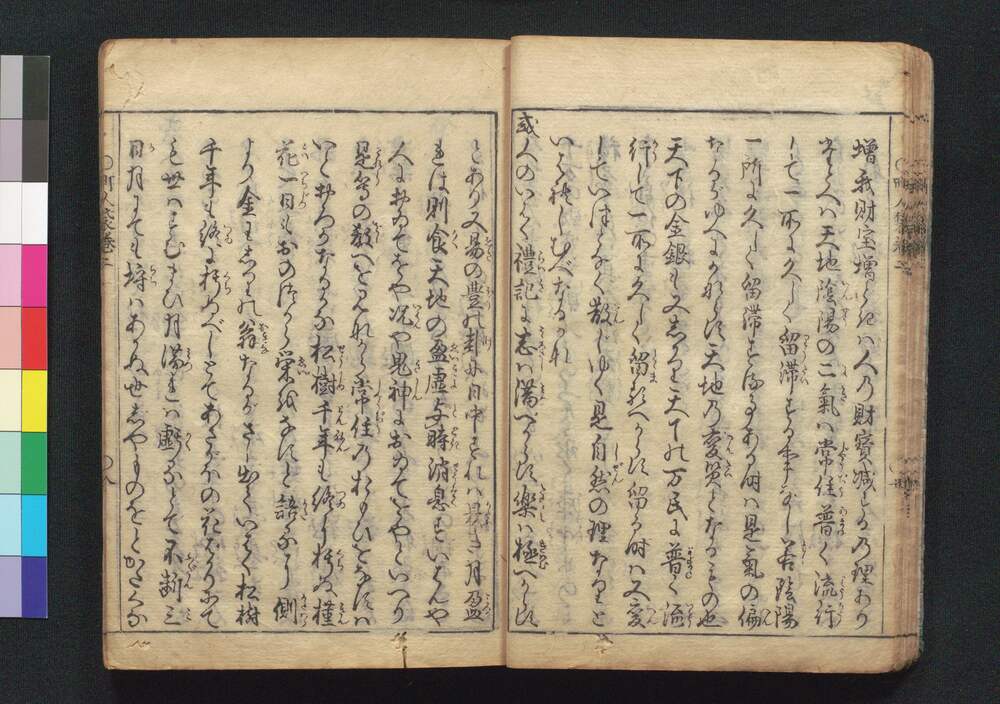 増我財宝増ときは人の財宝減ずるの理あり
それ人は天地陰陽の二氣は常住普く流行
して一所に久しく留滞する事なし若陰陽
一所に久しく留滞する事ある時は是氣の偏
なるがゆへにかならず天地の変災となるもの也
天下の金銀も又しかり天下の万民に普く流
行して一所に久しく留るべからず留る時は又変
していたづらに散じゆく是自然の理なりと
いへり慎しむべきなるかな
或人のいはく禮記に志は満べからず樂は極べからず
とあり又易の豊の卦に日中すればかたふき月盈
れば則食天地の盈虚与時消息すといはんや
人におゐてをや况や鬼神におゐてをやといへり
是等の教へを見れば常住のおもひをなすは
いとおろかなるかな松樹千年も終に朽ぬ槿
花一日もおのづから栄をなすと語ければ側
より金もらしき翁なるがさし出ていはく松樹
千年も終に朽ぬべしとてあさがほの花ばかりにて
も世はすむまひ月満れば虧るとて不断三
日月にても埒はあかぬ世じやものをとかたられ
町人